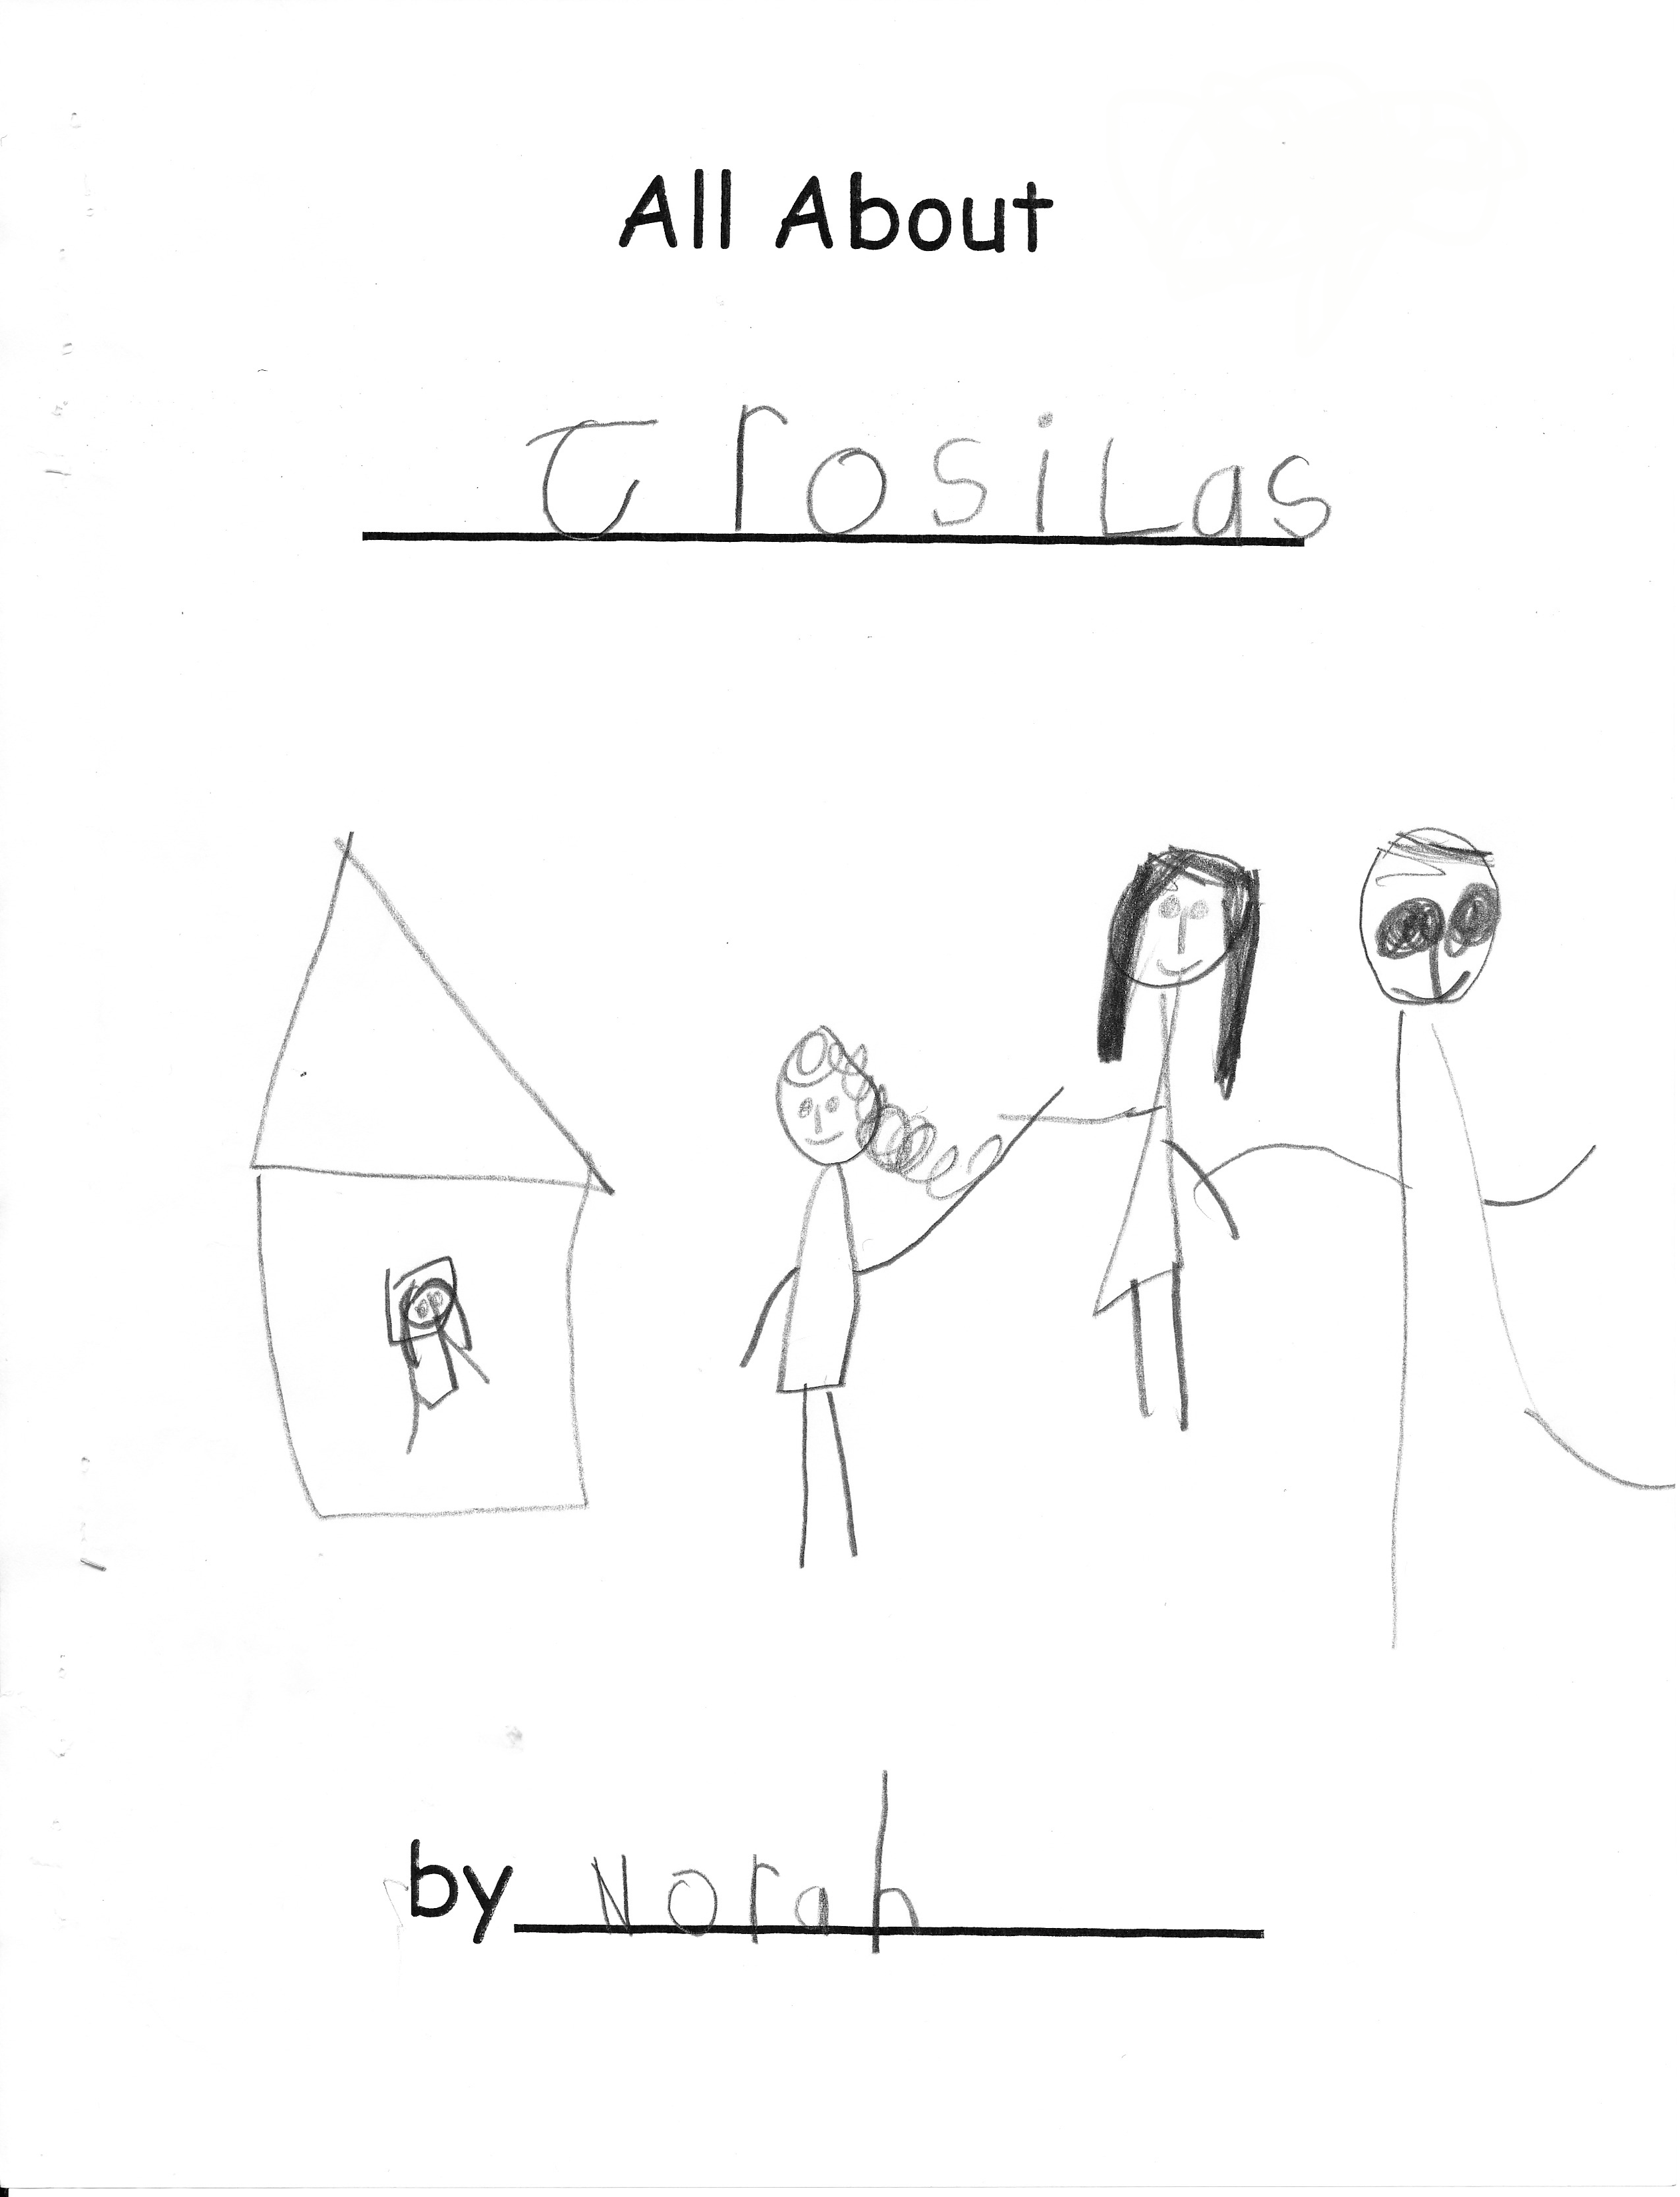 All About
trosiLas
by Norah